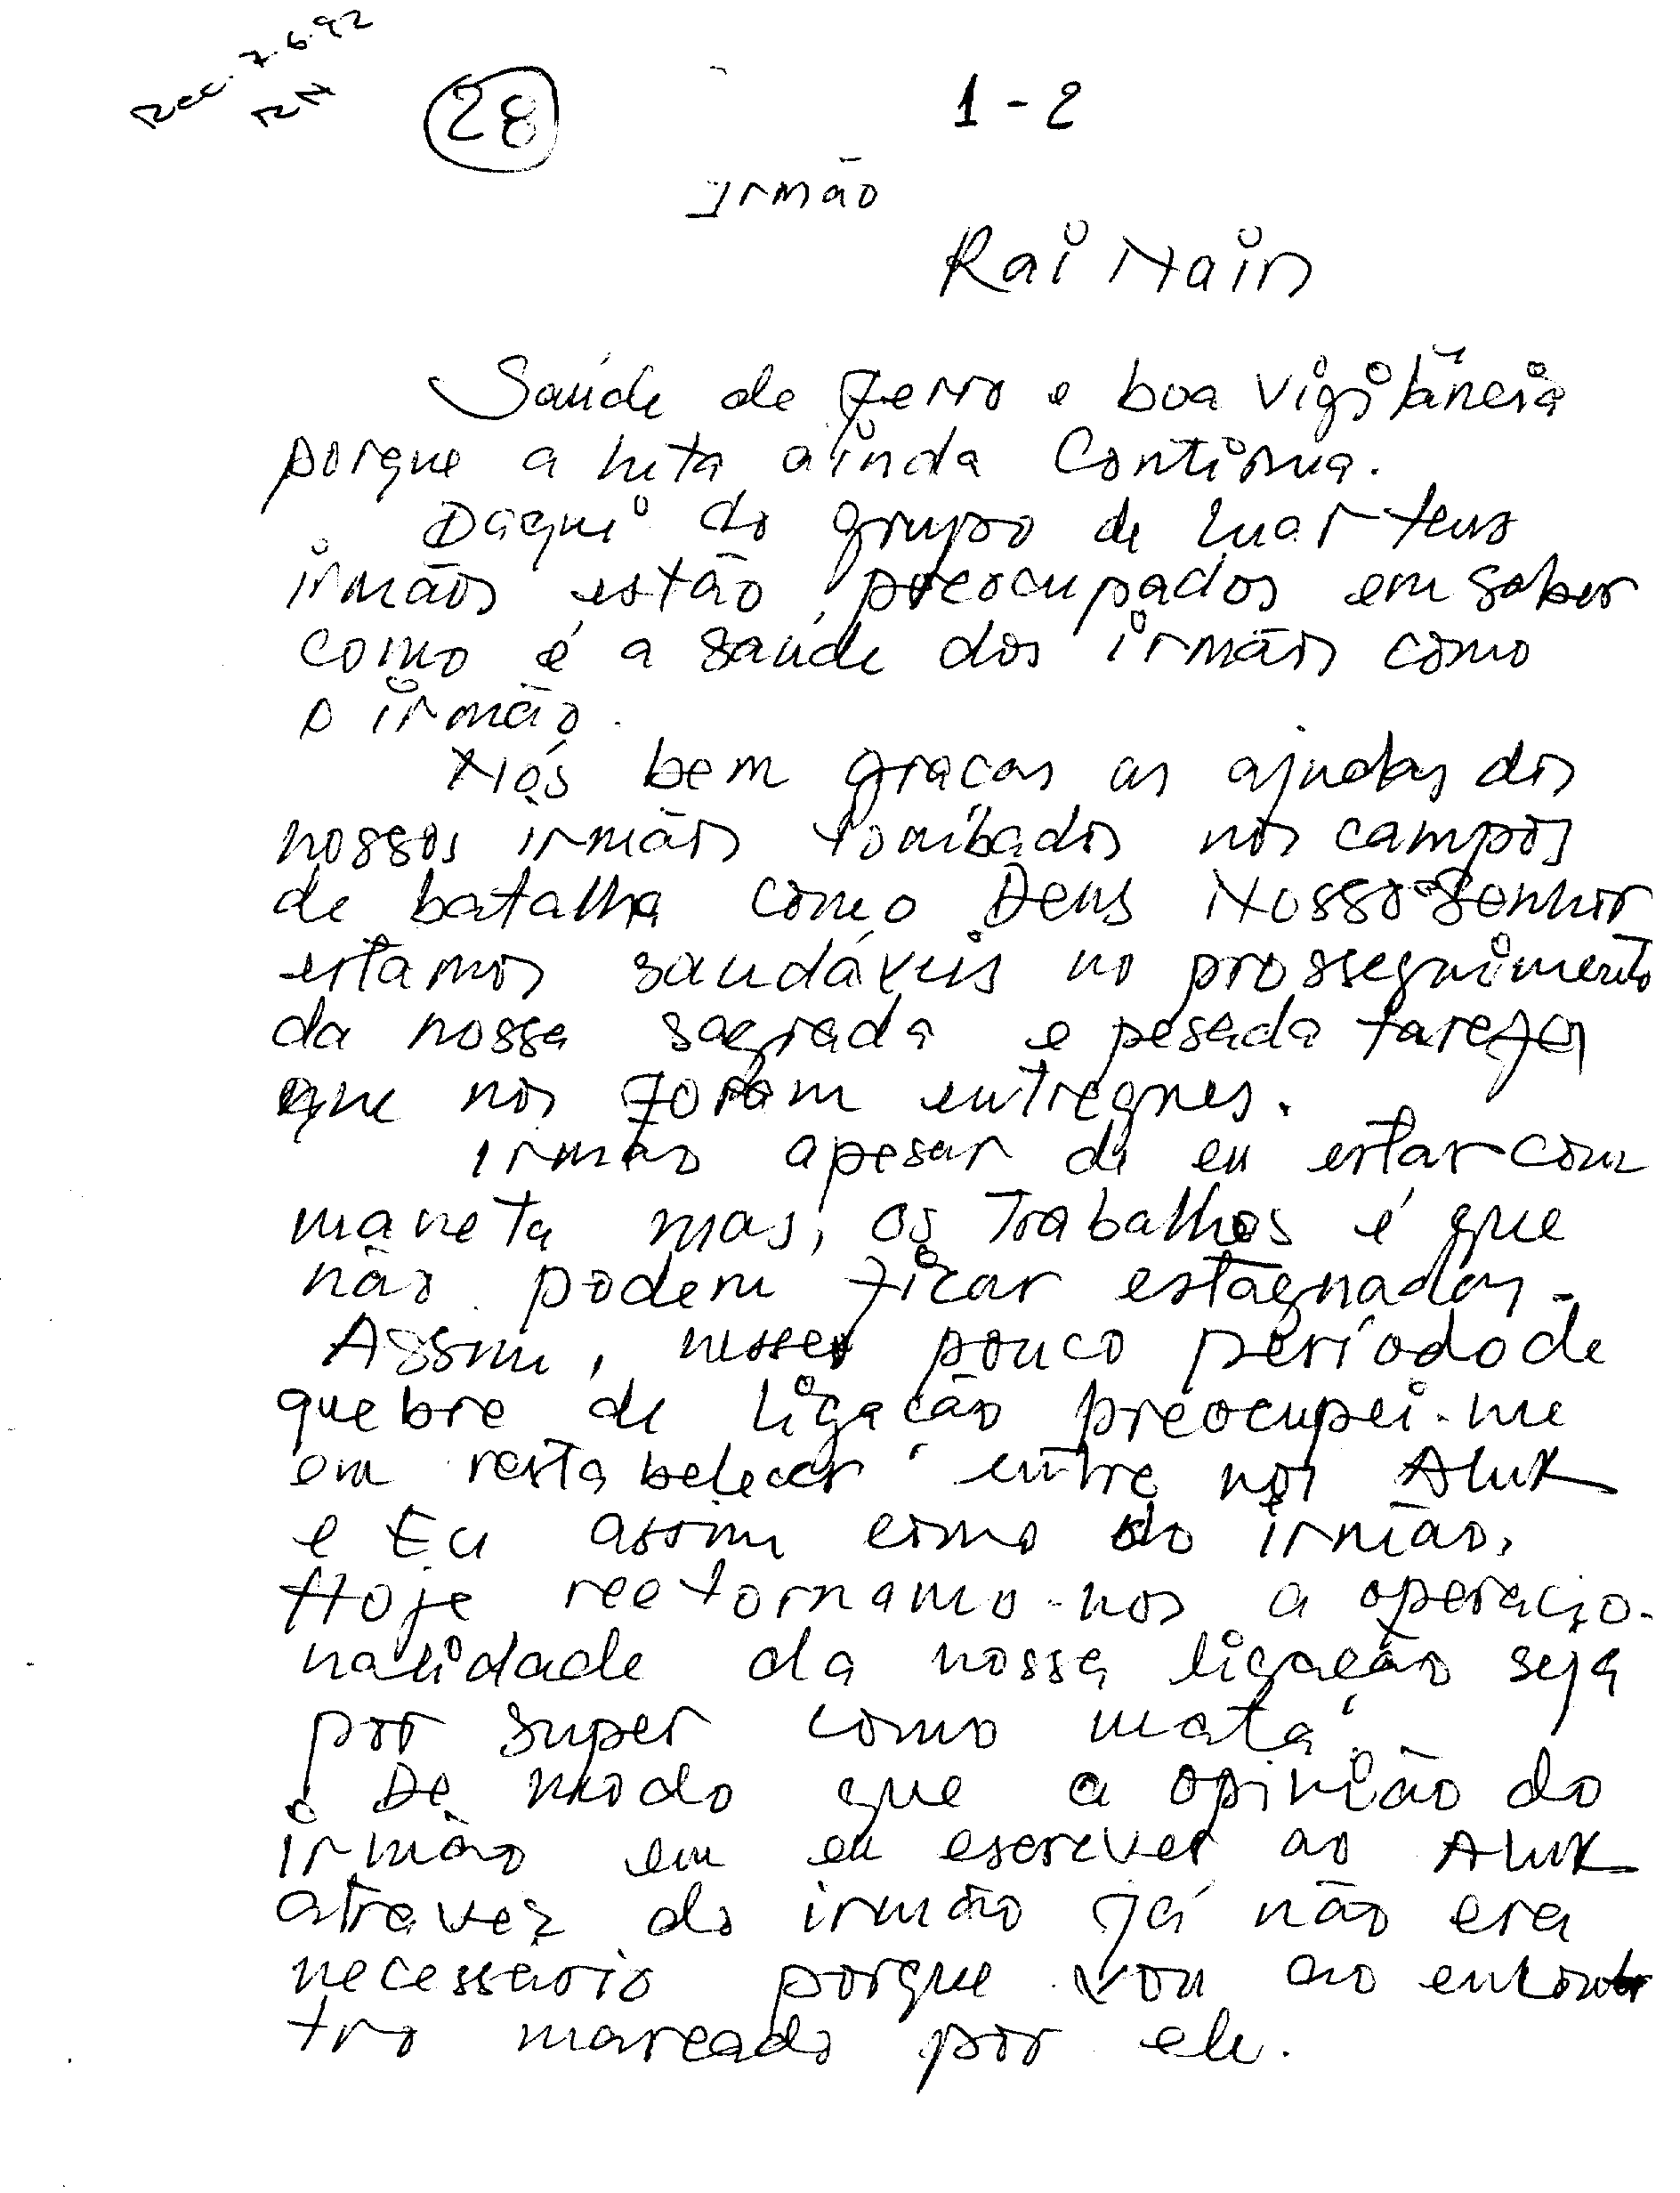 Rec. 7.6.92
RN
28
1-2
Irmão
Rai Nain
Saúde de ferro e boa vigilância
porque a luta ainda continua.
Daqui do grupo de Luar teus
irmãos estão preocupados em saber
como é a saúde dos irmãos como
o irmão.
Nós bem graças as ajudas dos
nossos irmãos tombados nos campos
de batalha como Deus Nosso Senhor
estamos saudáveis no prosseguimento
da nossa sagrada e pesada tarefa
que nos foram entregues.
Irmão apesar de eu estar com
maneta mas, os trabalhos é que
não podem ficar estagnados.
Assim, nesses pouco período de
quebre de ligação preocupei-me
em restabelecer entre nós Aluk
e Eu assim como do irmão.
Hoje reetornamo-nos a operacio-
nalidade da nossa ligação seja
por super como mata.
De modo que a opinião do
irmão em eu escrever ao Aluk
atravez do irmão já não era
necessário porque vou ao encon
tro marcado por ele.